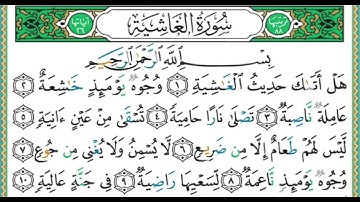 ترتيبها ٨٨ سُورَةُ الْغَاشِيَةِ آياتها ٢٦
بِسْمِ اللَّهِ الرَّحْمَٰنِ الرَّحِيمِ
هَلْ أَتَىٰكَ حَدِيثُ الْغَٰشِيَةِ ١ وُجُوهٌ يَوْمَئِذٍ خَٰشِعَةٌ ٢
عَامِلَةٌ نَاصِبَةٌ ٣ تَصْلَىٰ نَارًا حَامِيَةً ٤ تُسْقَىٰ مِنْ عَيْنٍ ءَانِيَةٍ ٥
لَيْسَ لَهُمْ طَعَامٌ إِلَّا مِن ضَرِيعٍ ٦ لَا يُسْمِنُ وَلَا يُغْنِي مِن جُوعٍ ٧
وُجُوهٌ يَوْمَئِذٍ نَاعِمَةٌ ٨ لِسَعْيِهَا رَاضِيَةٌ ٩ فِي جَنَّةٍ عَالِيَةٍ ١٠